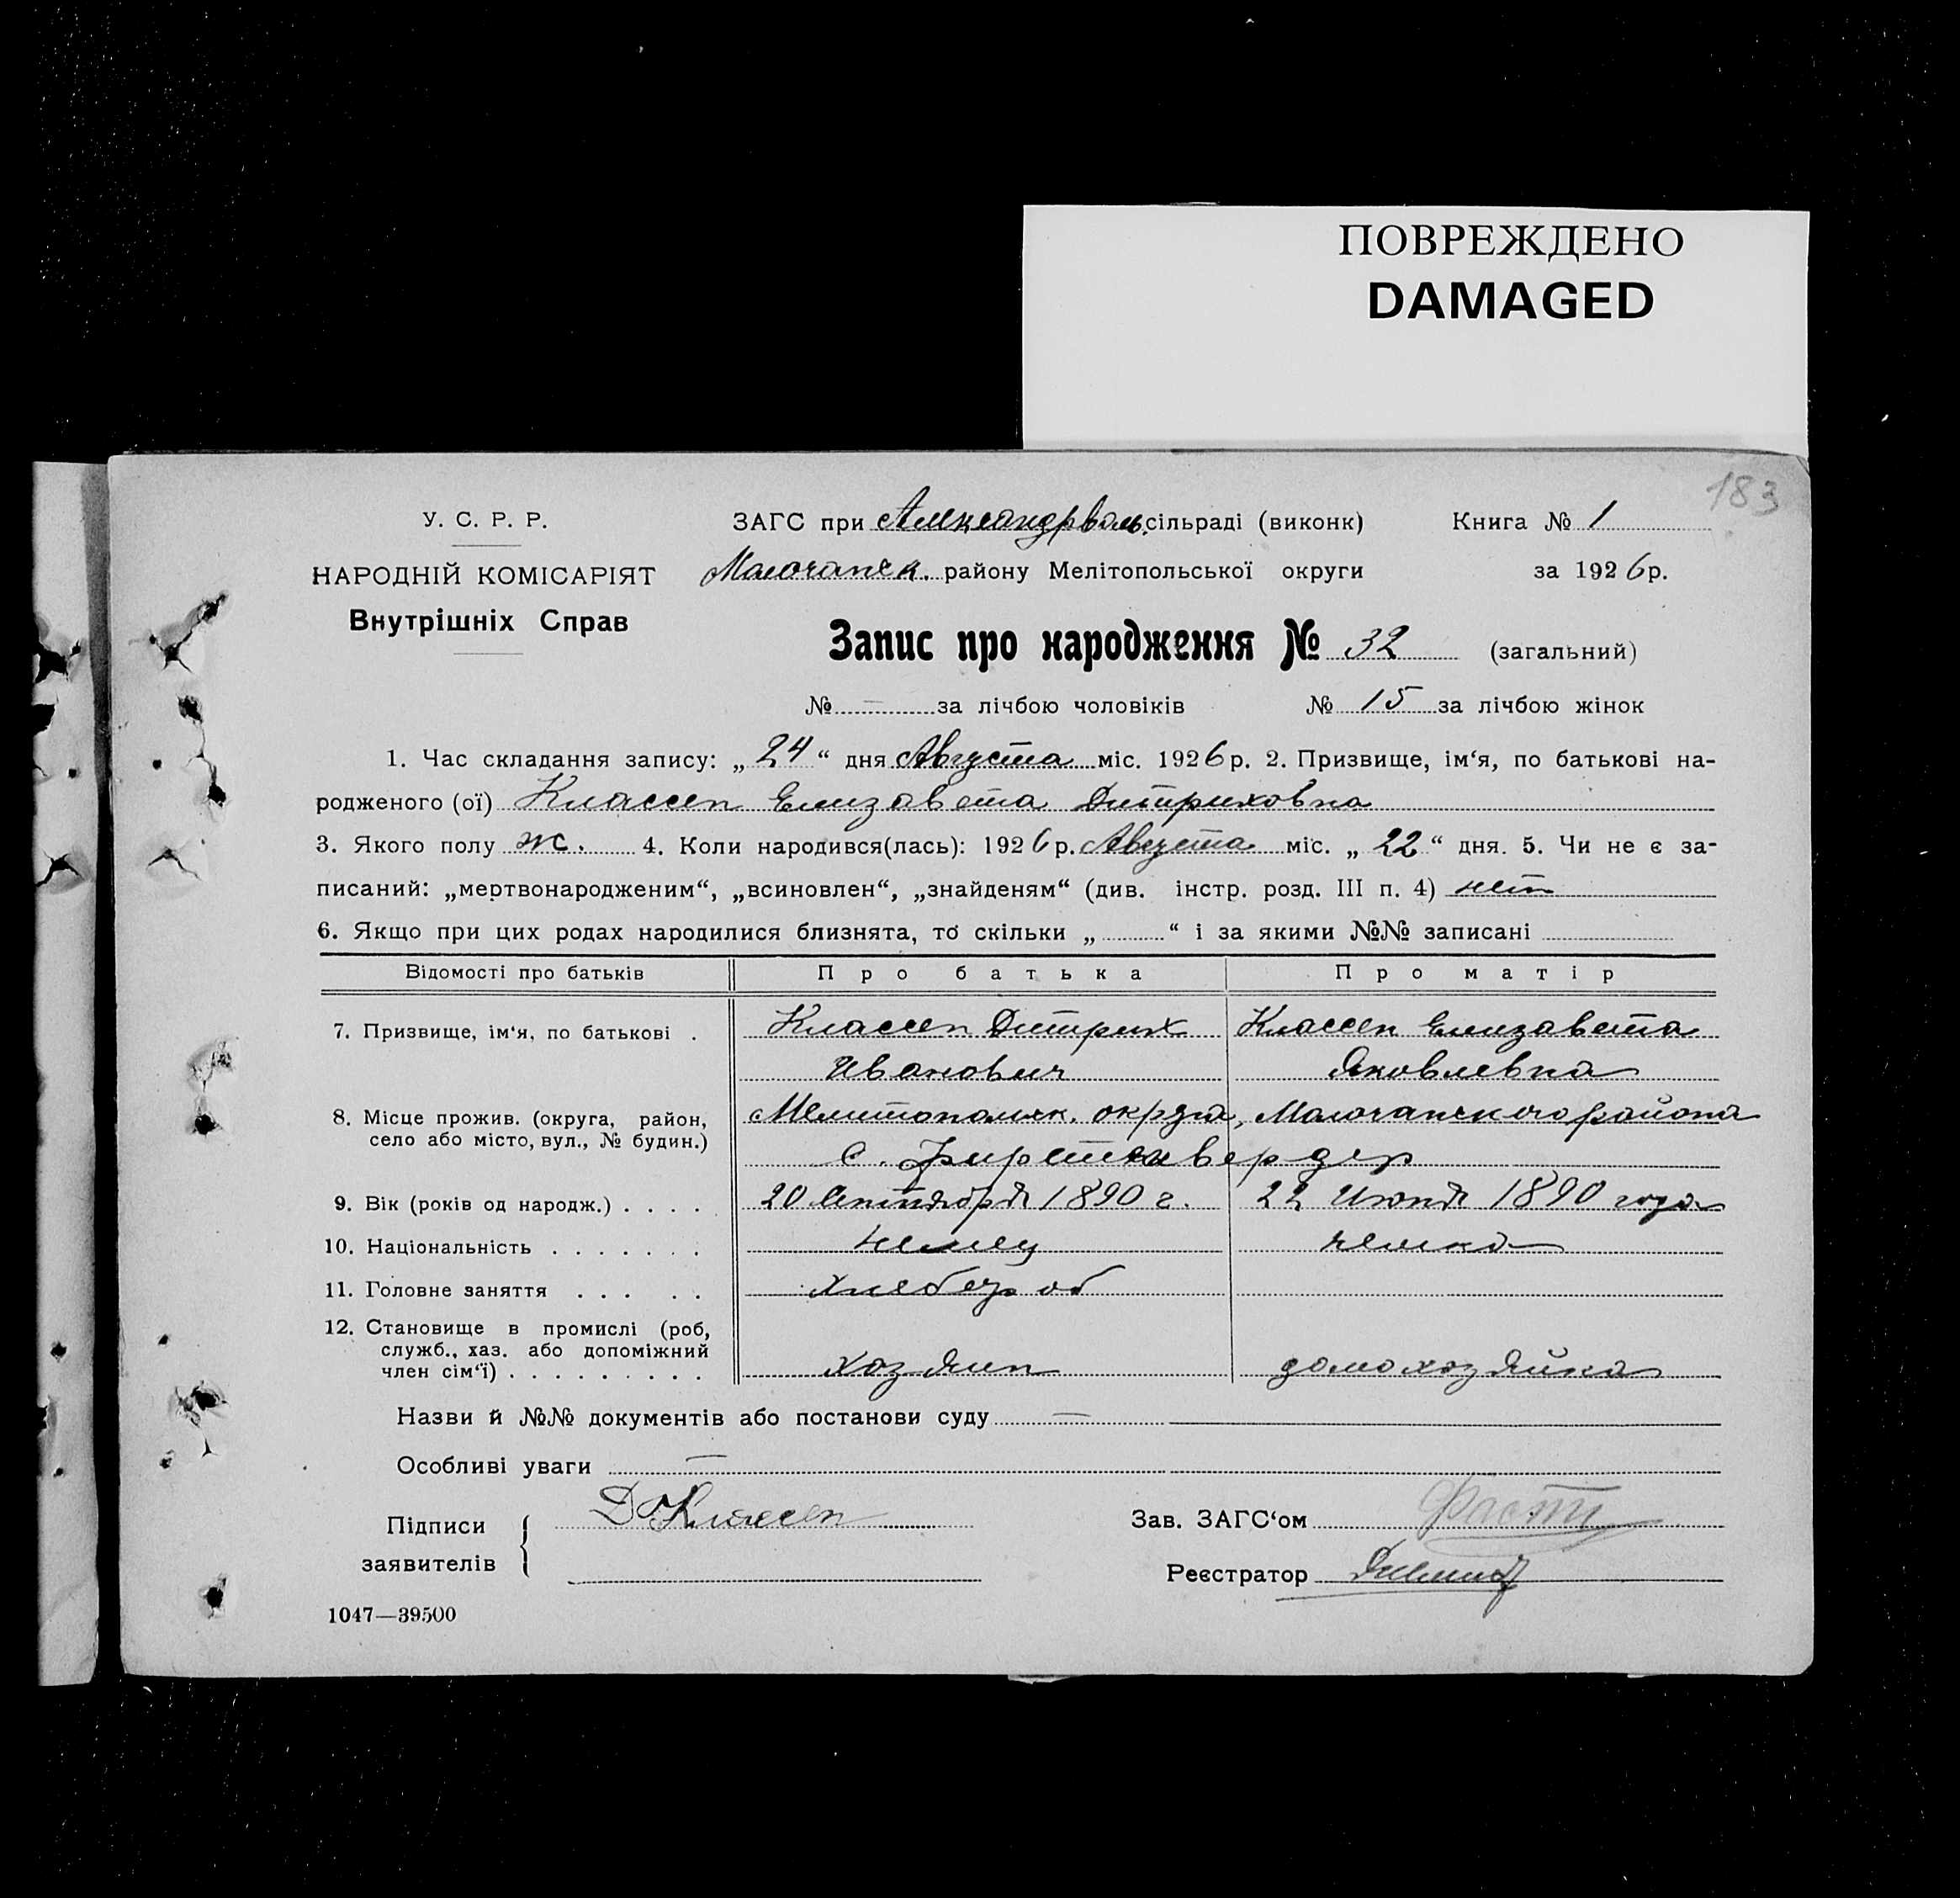 ПОВРЕЖДЕНО
DAMAGED
183
У. С. Р. Р.
НАРОДНІЙ КОМІСАРІЯТ
Внутрішніх Справ
ЗАГС при Александрваль. сільраді (виконк)
Книга № 1
Молочанск. району Мелітопольської округи
за 1926 р.
Запис про народження № 32 (загальний)
№ — за лічбою чоловіків № 15 за лічбою жінок
1. Час складання запису: „ 24 “ дня Августа міс. 1926 р. 2. Призвище, ім‘я, по батькові на-
родженого (ої) Классен Елизавета Дитриховна
3. Якого полу ж. 4. Коли народився(лась): 1926 р. Августа міс. „ 22 “ дня. 5. Чи не є за-
писаний: „мертвонародженим“, „всиновлен“, „знайденям“ (див. інстр. розд. III п. 4) нет
6. Якщо при цих родах народилися близнята, то скільки „ “ і за якими №№ записані
Відомості про батьків Про батька Про матір
7. Призвище, ім‘я, по батькові . Классен Дитрих Классен Елизавета
Иванович Яковлевна
8. Місце прожив. (округа, район, Мелитопольск. округа, Молочанского района
село або місто, вул., № будин.)
с. Фирстенвердер
9. Вік (років од народж.) . . . . 20 Октября 1890 г. 22 Июня 1890 года
10. Національність . . . . . . . немец немка
11. Головне заняття . . . . . хлебороб
12. Становище в промислі (роб,
служб., хаз. або допоміжний
член сім‘ї) . . . . . . . . . хозяин домохозяйка
Назви й №№ документів або постанови суду —
Особливі уваги —
Підписи
заявителів
Д Классен
Зав. ЗАГС‘ом Фаст
Реєстратор
1047—39500